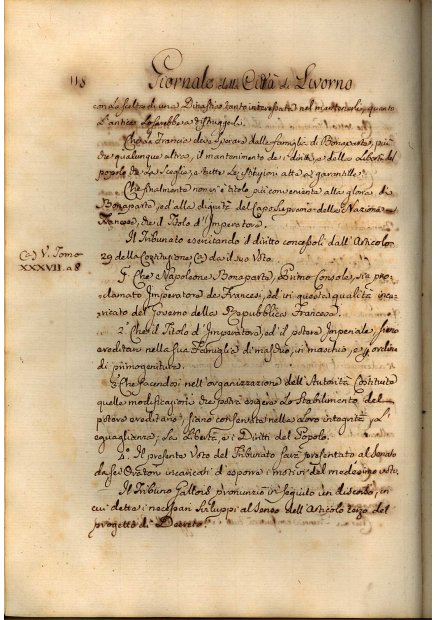 118 Giornale della Città di Livorno
con la scelta di una Dinastia tanto interessata nel mantenerli, quanto
l'antica lo sarebbe a distruggerli.
Che la Francia deve sperare dalla famiglia di Bonaparte, più
che qualunque altra, il mantenimento de' diritti, e della Libertà del
popolo che la sceglie, e tutte le Istituzioni atte a garantirle.
Che finalmente non vi è titolo più conveniente alla gloria di
Bonaparte, ed alla dignità del Capo Supremo della Nazione
Francese, che il Titolo d'Imperatore.
Il Tribunato esercitando il diritto concessoli dall'Articolo
(a) V. Tomo
XXXVII. a 8
29 della Costituzione (a) dà il suo Voto.
1.° Che Napoleone Bonaparte, Primo Console, sia pro-
clamato Imperatore de' Francesi, ed in questa qualità inca-
ricato del Governo della Repubblica Francese.
2.° Che il Titolo d'Imperatore, ed il potere Imperiale, siano
ereditari nella sua Famiglia di maschio, in maschio, e per ordine
di primogenitura.
3.° Che facendosi nell'organizzazione dell'Autorità Costituite
quelle modificazioni che potrà esigere lo stabilimento del
potere ereditario, siano conservate nella loro integrità
eguaglianza, la Libertà, e i Diritti del Popolo.
4.° Il presente Voto del Tribunato sarà presentato al Senato
da sei Oratori incaricati d'esporre i motivi del medesimo voto.
Il Tribuno Gallois pronunziò in seguito un discorso, in
cui dette i necessari sviluppi al senso dell'Articolo terzo del
progetto di Decreto.